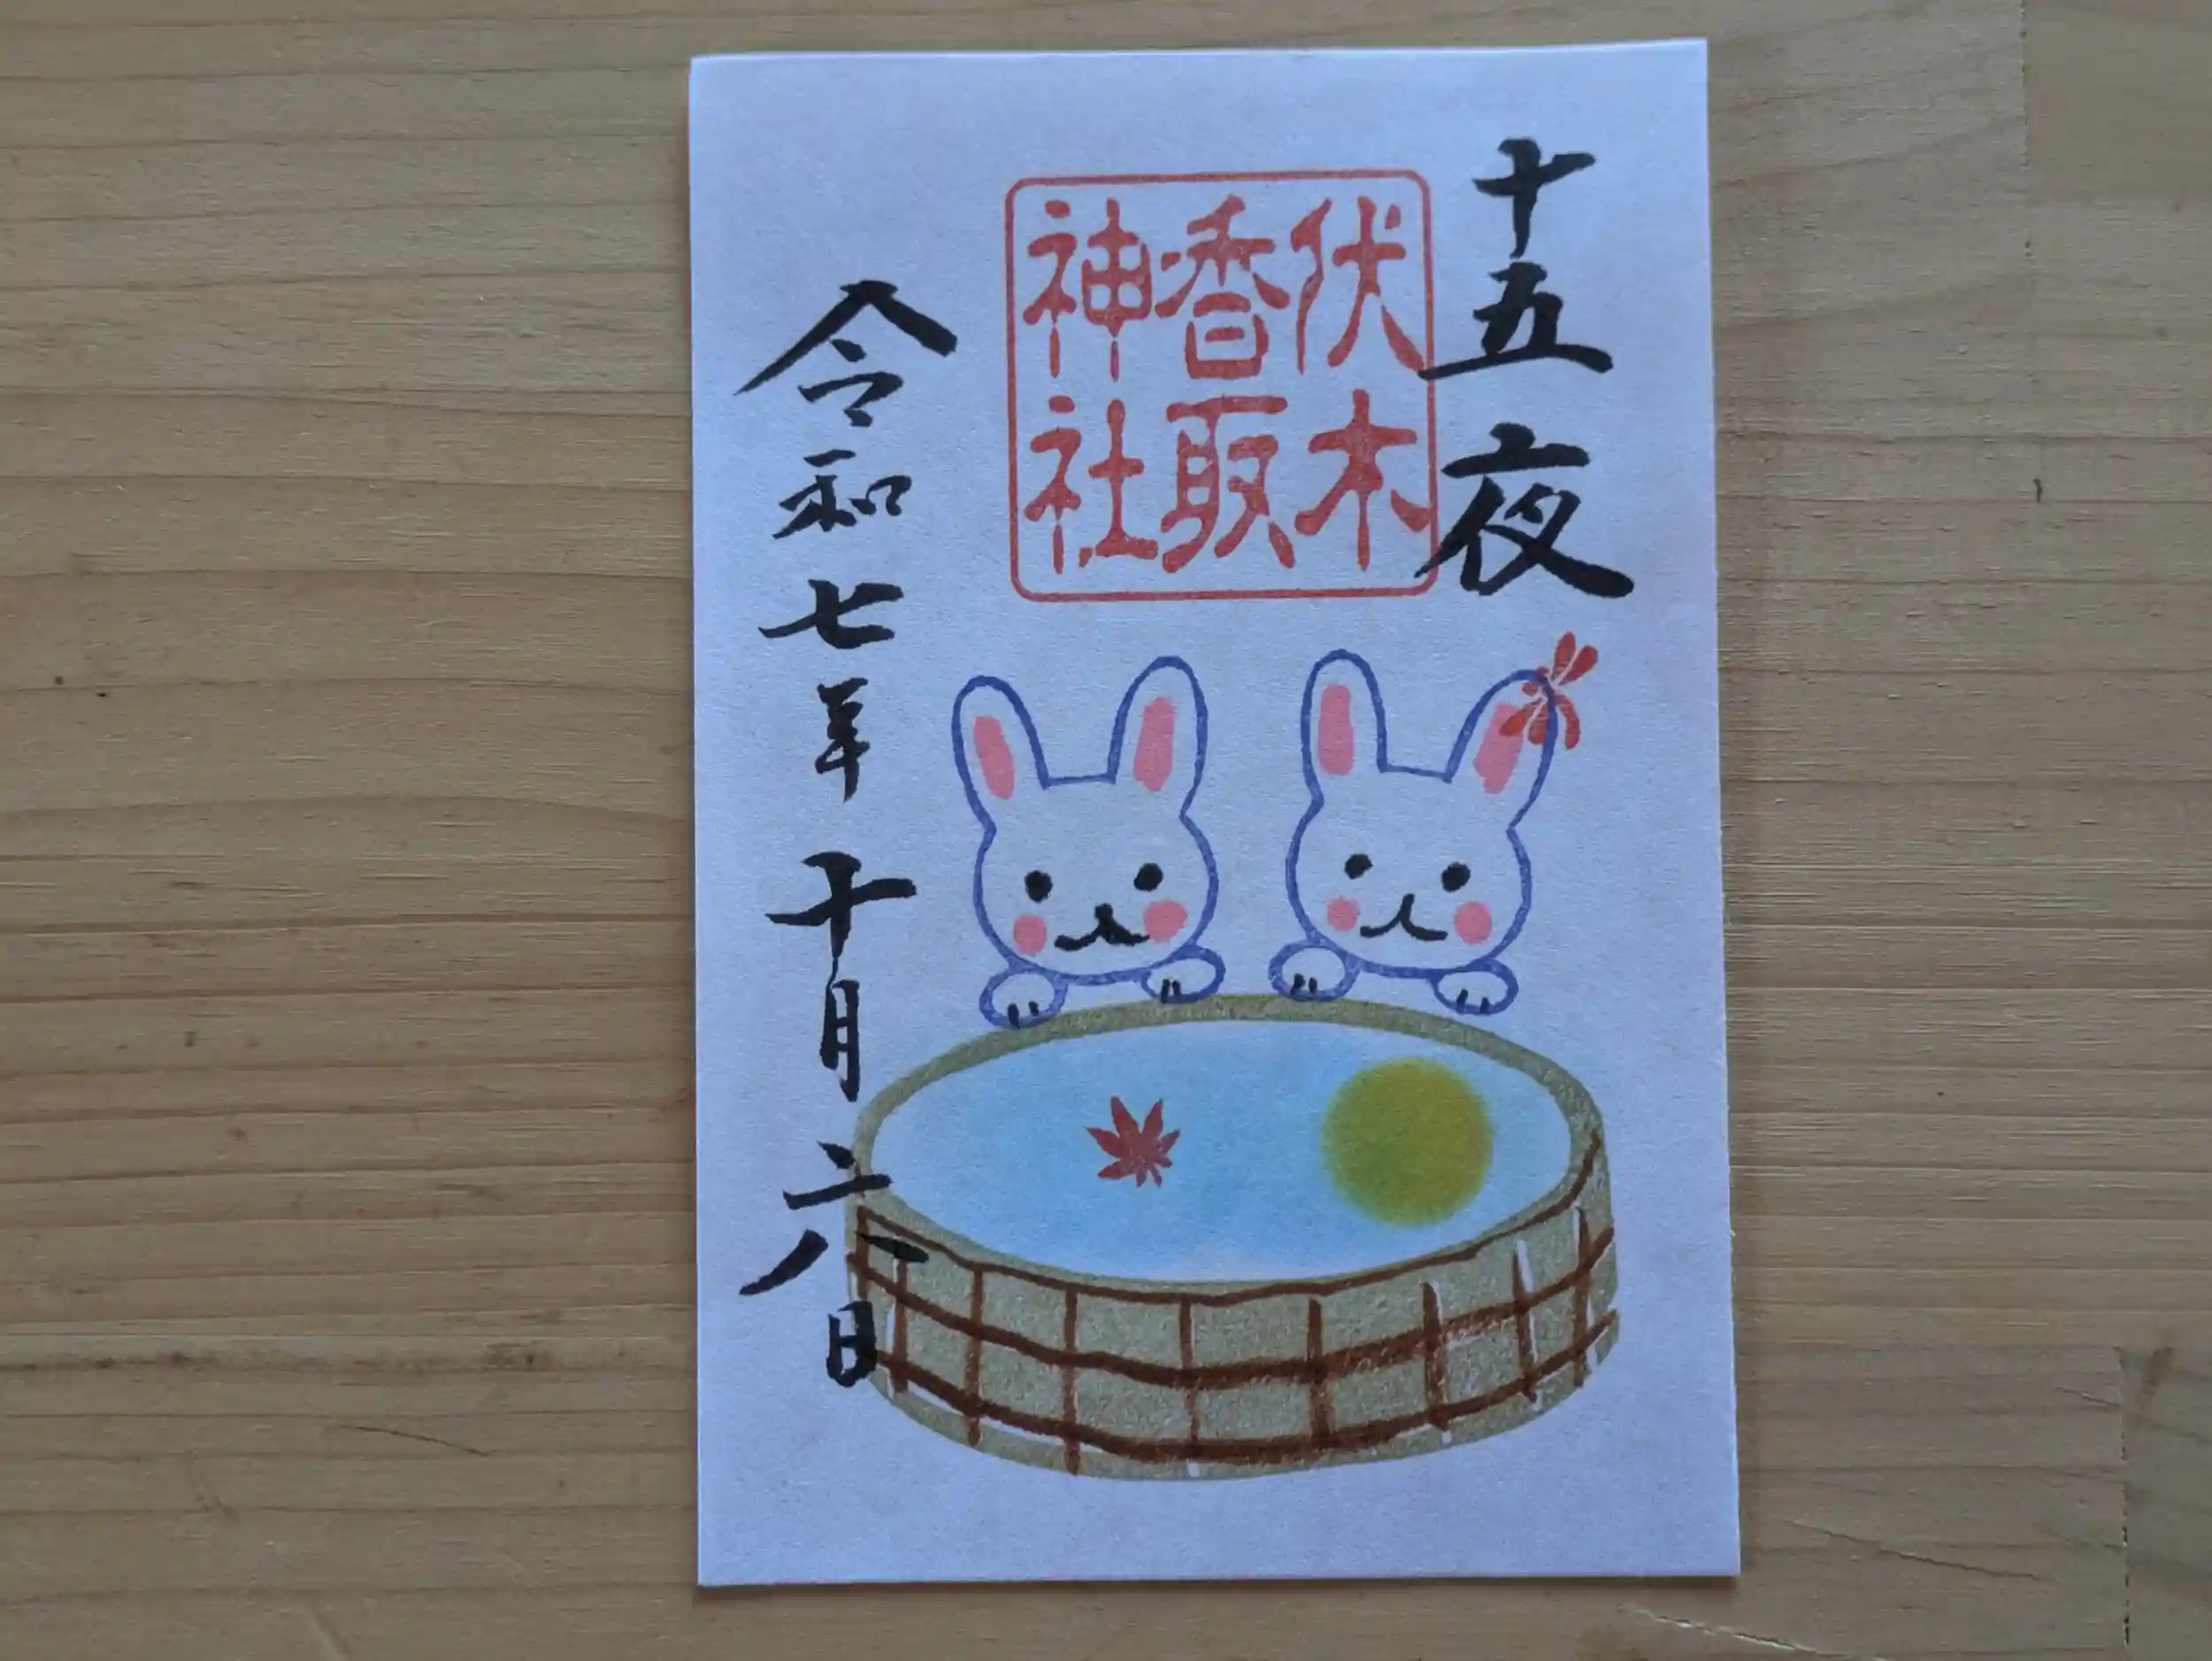 十五夜
伏木
香取
神社
令和七年十月六日